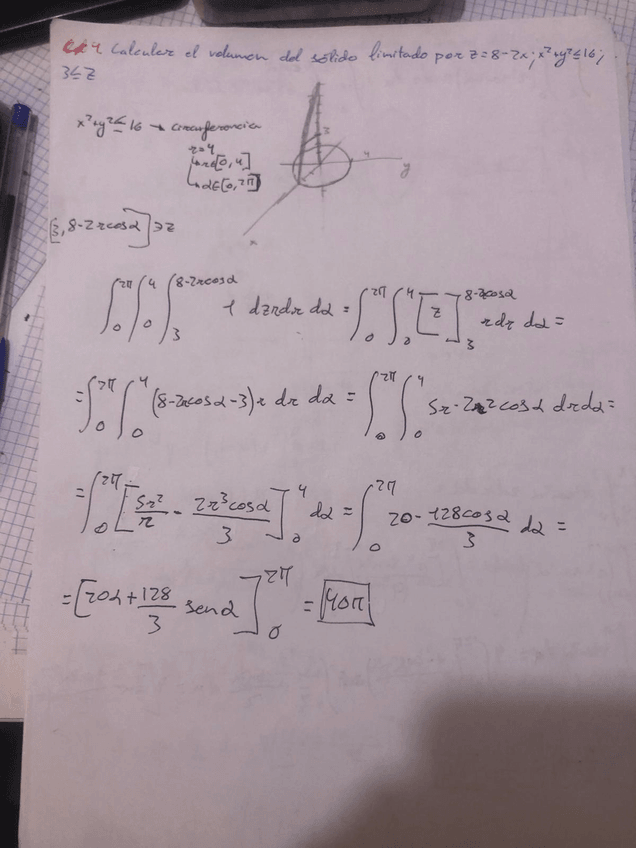 Ex 4 Calcular el volumen del sólido limitado por z=8-2x; x²+y²≤16;
3≤z
x²+y²≤16 → circunferencia
r=4
↳ r∈[0,4]
↳ α∈[0,2π]
z
4
y
x
[3, 8-2rcosα]∋z
∫₀^2π ∫₀^4 ∫₃^8-2rcosα 1 dz r dr dα = ∫₀^2π ∫₀^4 [z]₃^8-2rcosα r dr dα =
= ∫₀^2π ∫₀^4 (8-2rcosα-3) r dr dα = ∫₀^2π ∫₀^4 5r-2r²cosα dr dα =
= ∫₀^2π [5r²/2 - 2r³cosα/3]₀^4 dα = ∫₀^2π 20 - 128cosα/3 dα =
= [20α + 128/3 senα]₀^2π = 40π